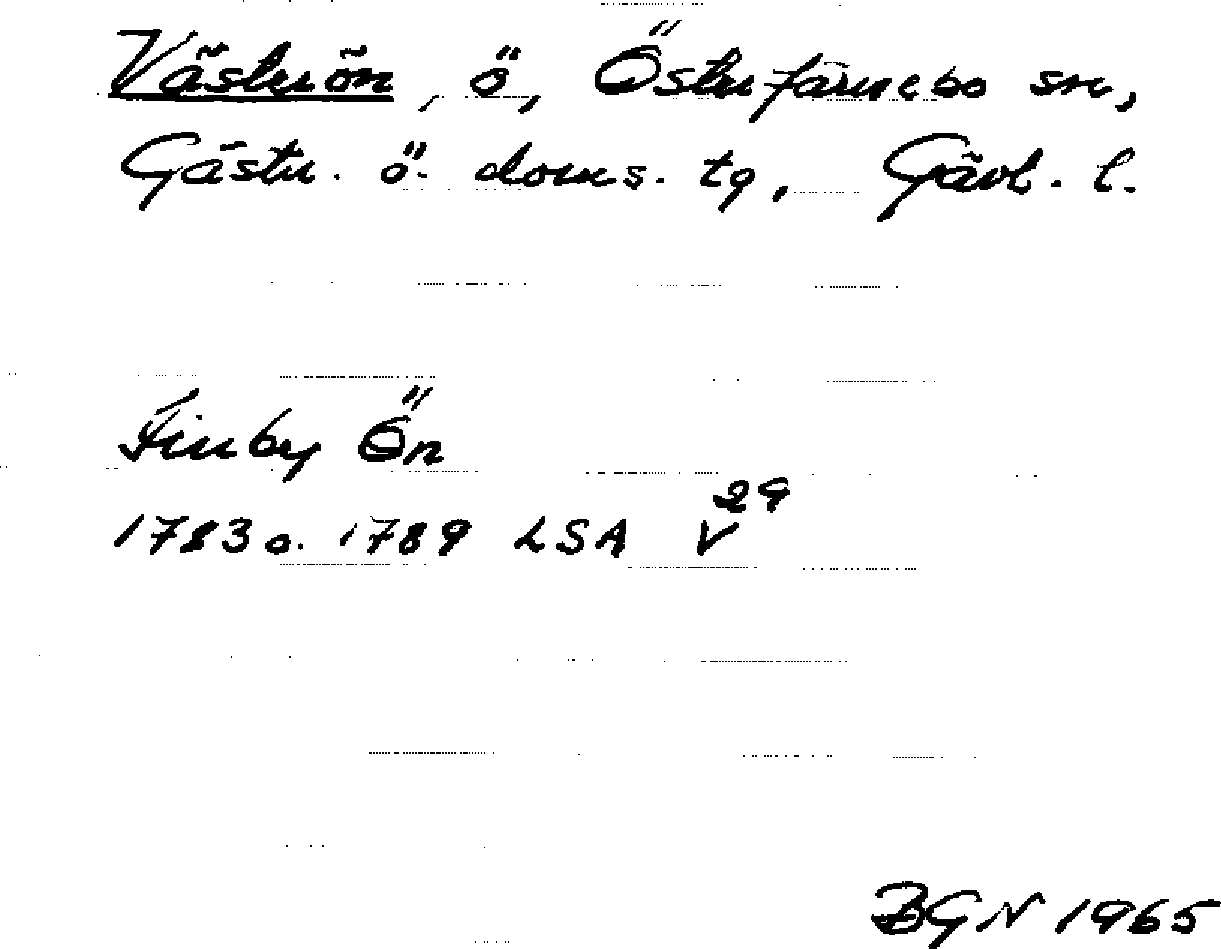 Västerön, ö, Österfärnebo sn,
Gästr. ö. doms. tg, Gävl. l.
Finby Ön
1783 o. 1789 LSA V 29
BGN 1965